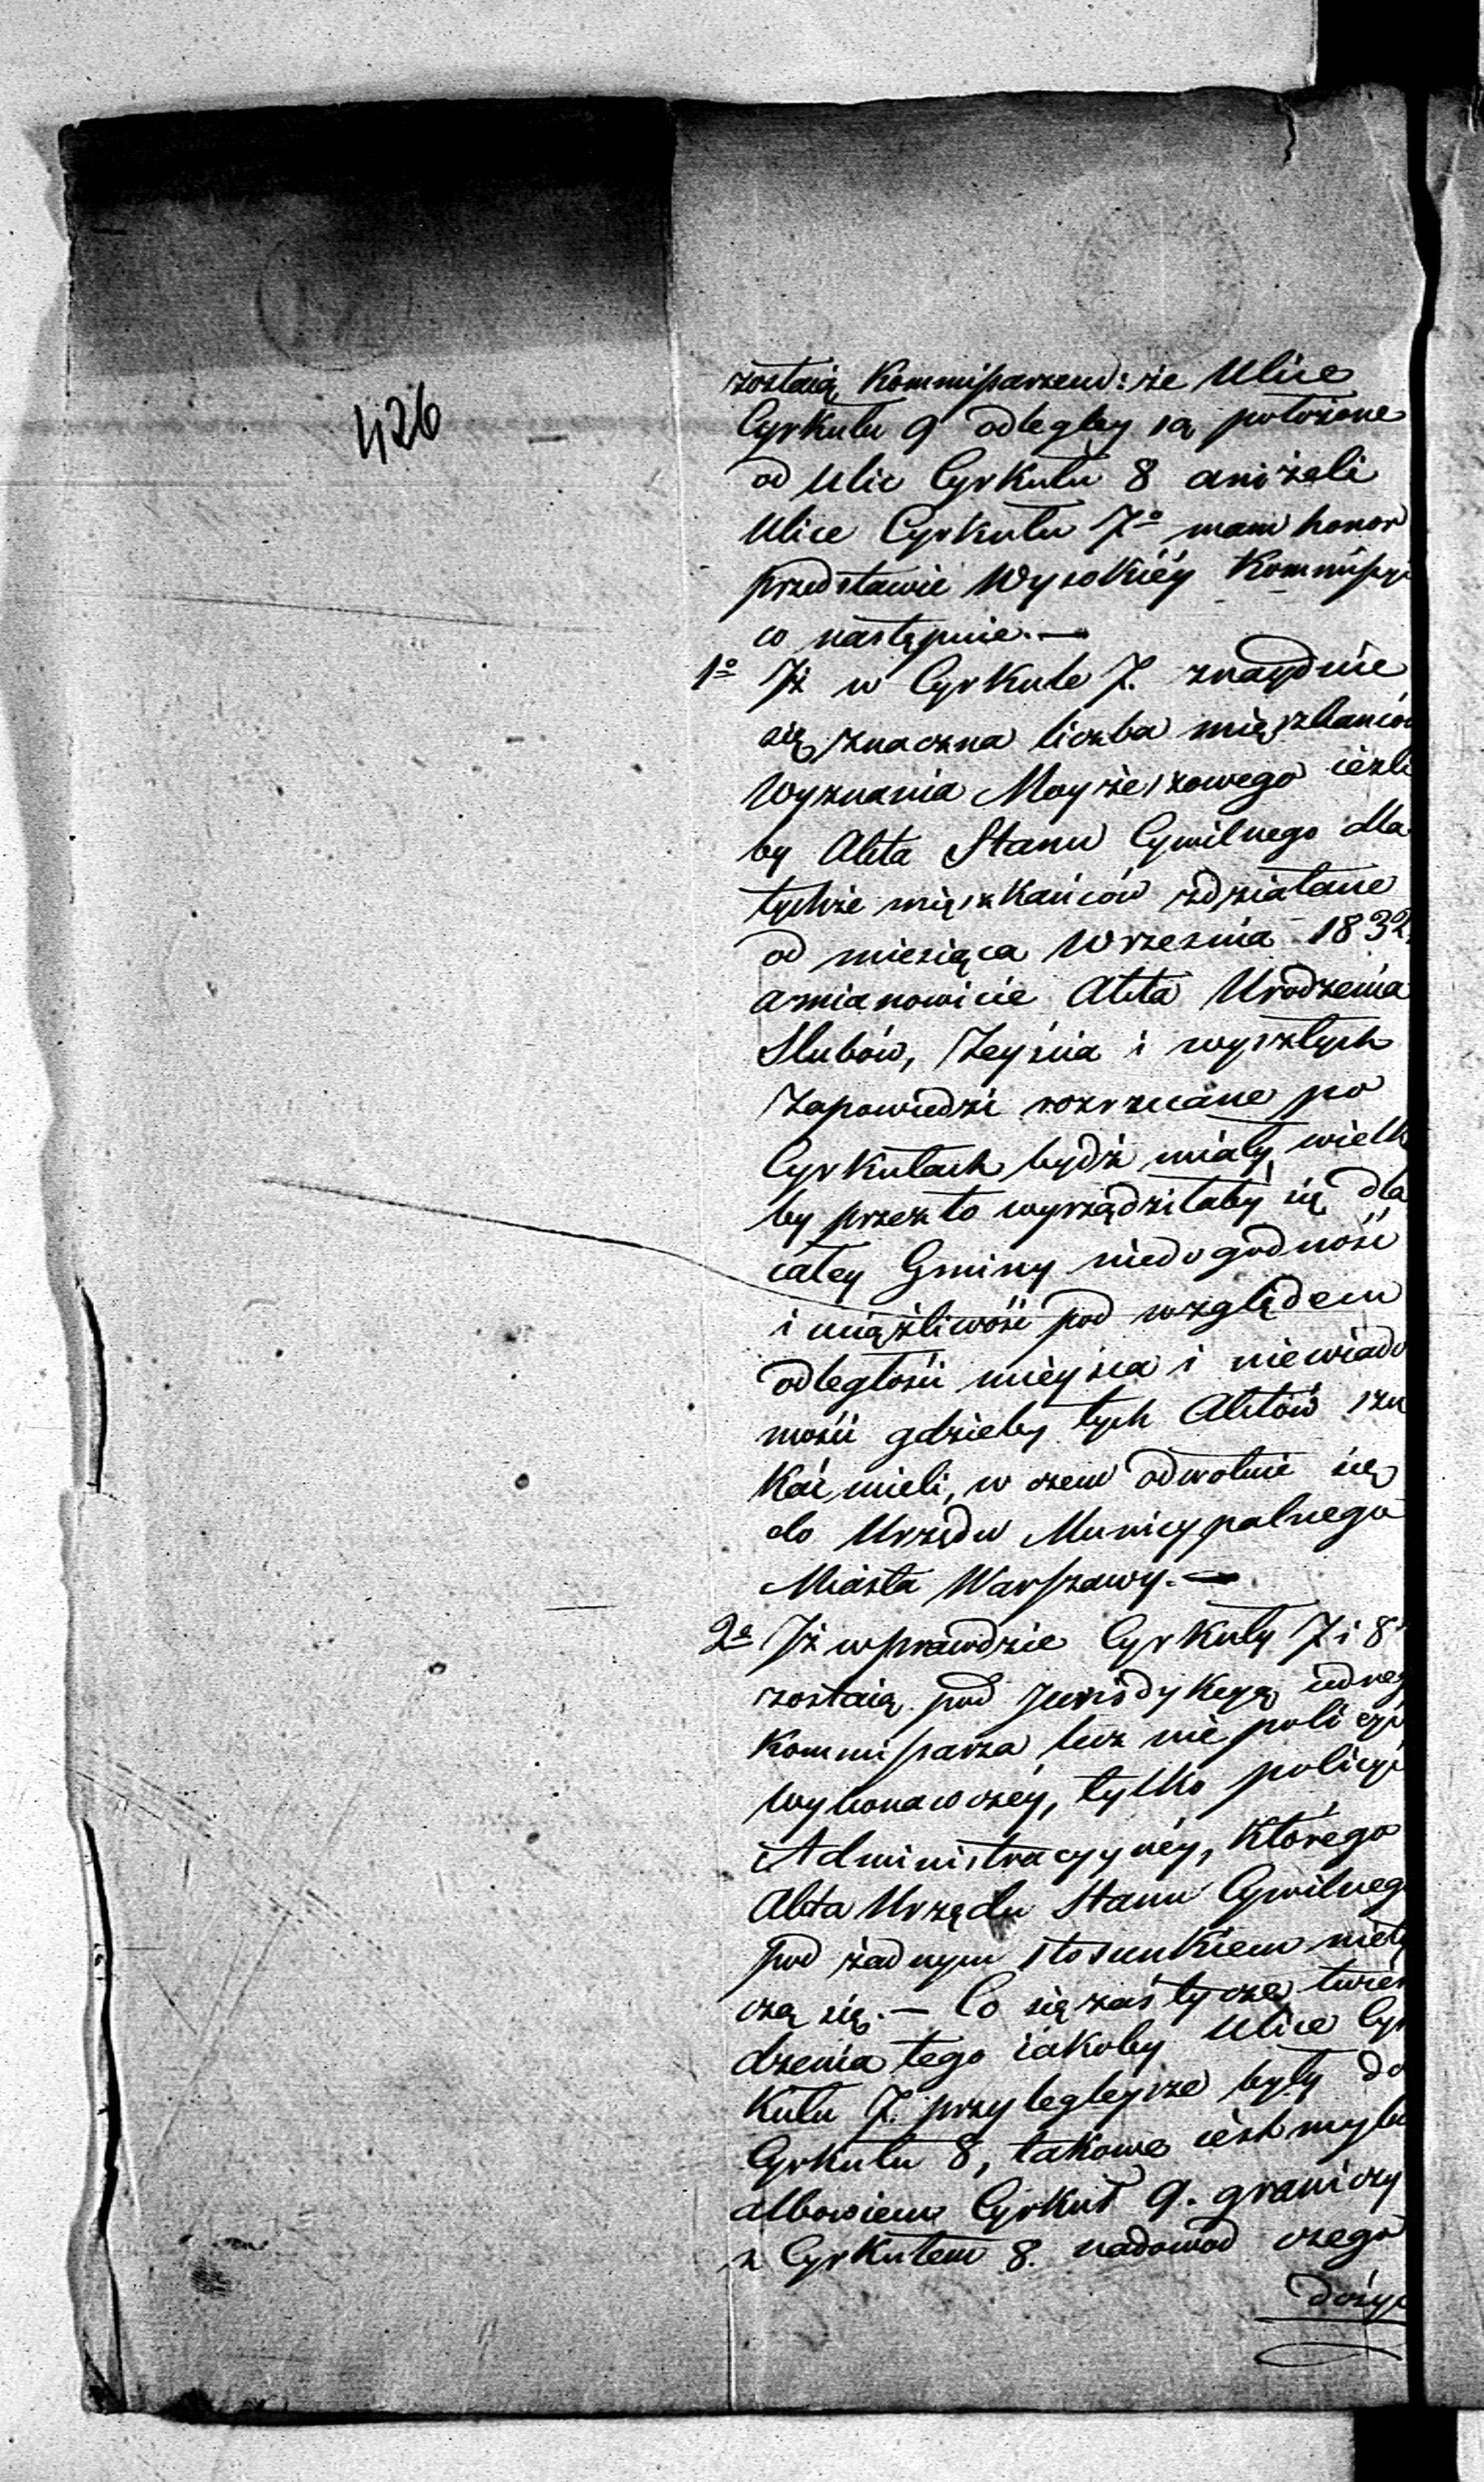 426
zostaią Kommissarzem: że Ulice
Cyrkułu 9 odległey są położone
od Ulic Cyrkułu 8 aniżeli
Ulice Cyrkułu 7º mam honor
przedstawić Wysokiéy Kommissyi
co następuie. —
1º Jż w Cyrkule 7. znayduie
się znaczna liczba mięszkańców
Wyznania Mayżeszowego ieżli
by Akta Stanu Cywilnego dla
tychże mięszkańców zdziałane
od miesiąca Września 1832.
amianowicie Akta Urodzenia
Slubów, Zeyścia i wyszłych
Zapowiedzi rozrzucane po
Cyrkułach bydź miały, wielk
by przez to wyrządziłaby się dla
całey Gminy niedogodność
i uciążliwość pod względem
odległości mieysca i niewiado
mości gdzieby tych Aktów szu
kać mieli, w czem odwołuie się
do Urzędu Municypalnego
Miasta Warszawy. —
2º Jż wprawdzie Cyrkuły 7 i 8º
zostaią pod Jurisdykcyą iedneg
Kommissarza lecz nie policyi
wykonawczéy, tylko policyi
Administracyynéy, którego
Akta Urzędu Stanu Cywilneg
pod żadnym stosunkiem niety
czą się. — Co się zaś tycze twier
dzenia tego iakoby Ulice Cyr
kułu 7. przyległeysze były do
Cyrkułu 8, takowe iest mylne
albowiem Cyrkuł 9. graniczy
z Cyrkułem 8. nadowód czego
dosyć